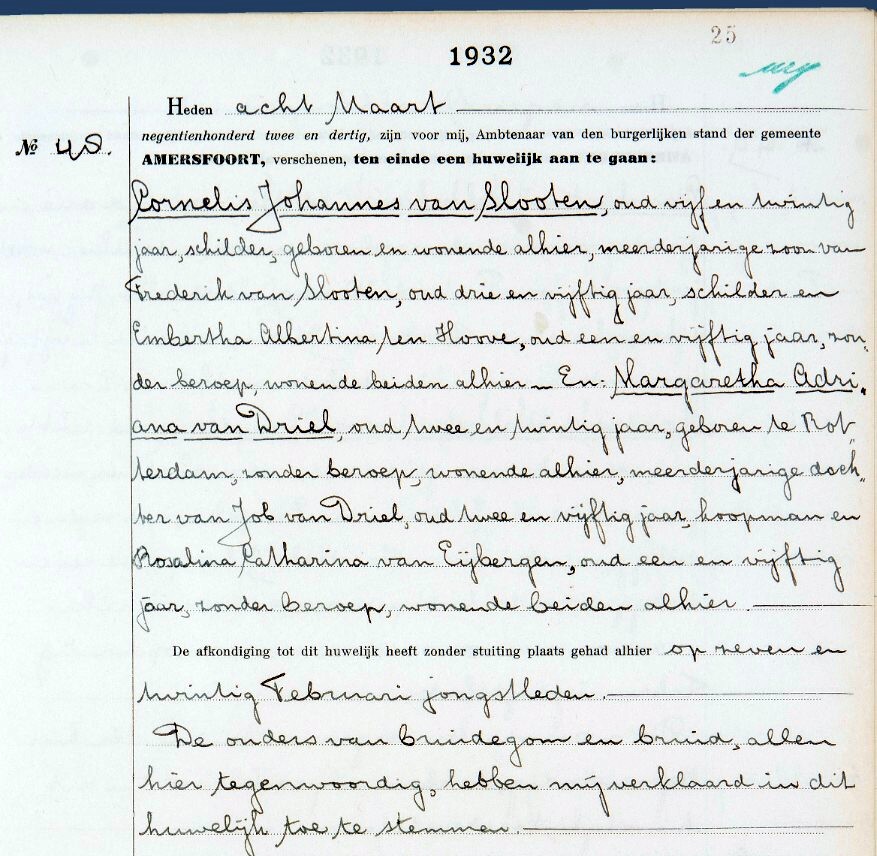 25
1932
Heden acht Maart
negentienhonderd twee en dertig, zijn voor mij, Ambtenaar van den burgerlijken stand der gemeente
No 48.
AMERSFOORT, verschenen, ten einde een huwelijk aan te gaan:
Cornelis Johannes van Slooten, oud vijf en twintig
jaar, schilder, geboren en wonende alhier, meerderjarige zoon van
Frederik van Slooten, oud drie en vijftig jaar, schilder en
Embertha Albertina ten Hoove, oud een en vijftig jaar, zon„
der beroep, wonende beiden alhier – En: Margaretha Adri„
ana van Driel, oud twee en twintig jaar, geboren te Rot„
terdam, zonder beroep, wonende alhier, meerderjarige doch„
ter van Job van Driel, oud twee en vijftig jaar, koopman en
Rosalina Catharina van Eijbergen, oud een en vijftig
jaar, zonder beroep, wonende beiden alhier.
De afkondiging tot dit huwelijk heeft zonder stuiting plaats gehad alhier op zeven en
twintig Februari jongstleden.
De ouders van bruidegom en bruid, allen
hier tegenwoordig, hebben mij verklaard in dit
huwelijk toe te stemmen.